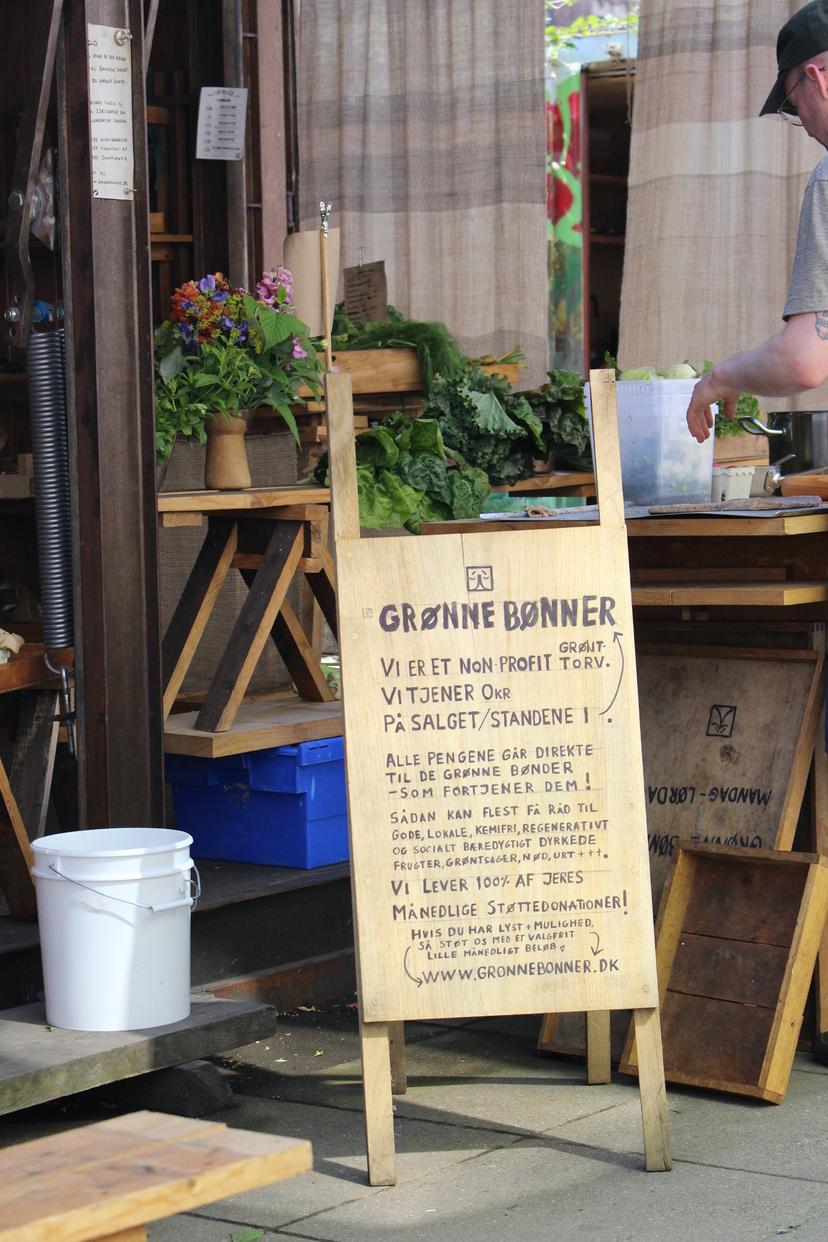 GRØNNE BØNNER
VI ER ET NON-PROFIT GRØNT-
TORV.
VI TJENER 0KR
PÅ SALGET/STANDENE I .
ALLE PENGENE GÅR DIREKTE
TIL DE GRØNNE BØNDER
-SOM FORTJENER DEM!
SÅDAN KAN FLEST FÅ RÅD TIL
GODE, LOKALE, KEMIFRI, REGENERATIVT
OG SOCIALT BÆREDYGTIGT DYRKEDE
FRUGTER, GRØNTSAGER, NØD, URT +++.
VI LEVER 100% AF JERES
MÅNEDLIGE STØTTEDONATIONER!
HVIS DU HAR LYST + MULIGHED,
SÅ STØT OS MED ET VALGFRIT
LILLE MÅNEDLIGT BELØB ♡
WWW.GRONNEBONNER.DK
MANDAG-LØRDA
GRØNNE